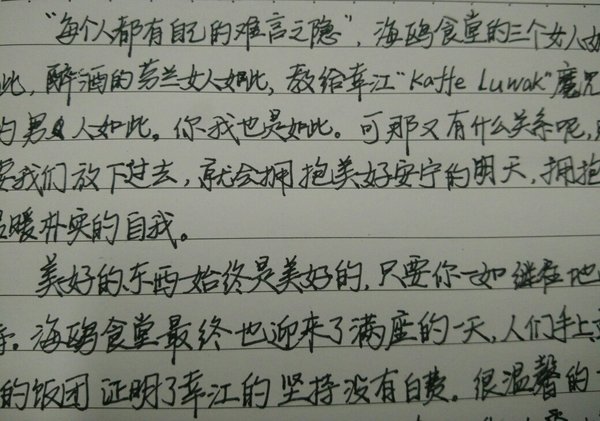 “每个人都有自己的难言之隐”，海鸥食堂的三个女人如
此，醉酒的芬兰女人如此，教给幸江“Kaffe Luwak”魔咒
的男人如此。你我也是如此。可那又有什么关系呢，
要我们放下过去，就会拥抱美好安宁的明天，拥抱
温暖朴实的自我。
美好的东西始终是美好的，只要你一如继在地
海鸥食堂最终也迎来了满座的一天，人们手上
的饭团证明了幸江的坚持没有白费。很温馨的